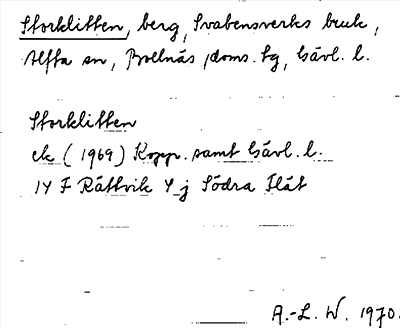 Storklitten, berg, Svabensverks bruk,
Alfta sn, Bollnäs doms. tg, Gävl. l.
Storklitten
ek (1969) Kopp. samt Gävl. l.
14 F Rättvik 4 j Södra Flät
A.-L. W. 1970.